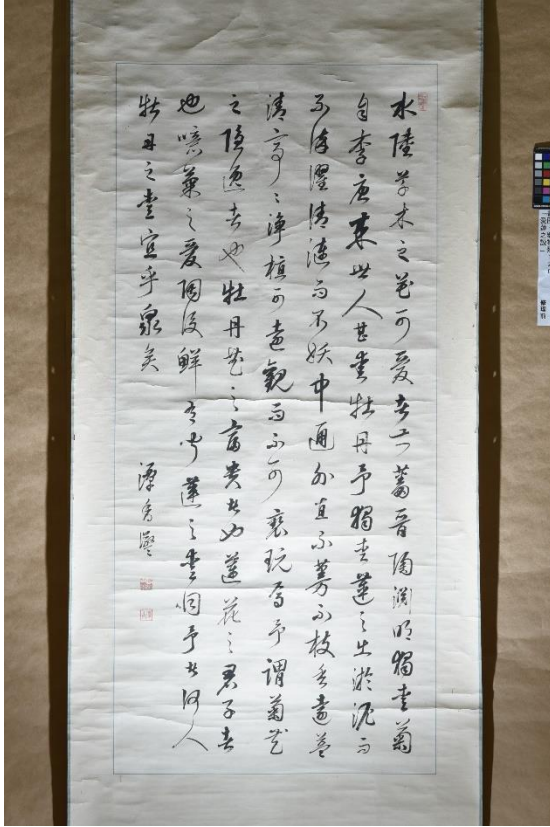 水陸草木之花可愛者甚蕃晉陶淵明獨愛菊
自李唐來世人甚愛牡丹予獨愛蓮之出淤泥而
不染濯清漣而不妖中通外直不蔓不枝香遠益
清亭々淨植可遠觀而不可褻玩焉予謂菊花
之隱逸者也牡丹花之富貴者也蓮花之君子者
也噫菊之愛陶後鮮有聞蓮之愛同予者何人
牡丹之愛宜乎衆矣
潭香